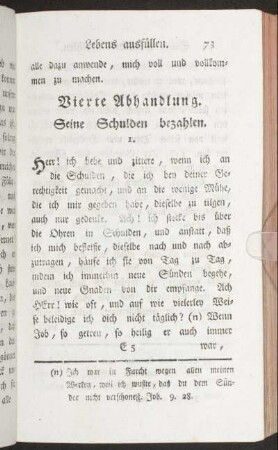 Lebens ausfüllen. 73
alle dazu anwende, mich voll und vollkom-
men zu machen.
Vierte Abhandlung.
Seine Schulden bezahlen.
1.
Herr! ich bebe und zittere, wenn ich an
die Schulden, die ich bey deiner Ge-
rechtigkeit gemacht, und an die wenige Mühe,
die ich mir gegeben habe, dieselbe zu tilgen,
auch nur gedenke. Ach! ich stecke bis über
die Ohren in Schulden, und anstatt, daß
ich mich befleiße, dieselbe nach und nach ab-
zutragen, häufe ich sie von Tag zu Tag,
indem ich immerhin neue Sünden begehe,
und neue Gnaden von dir empfange. Ach
HErr! wie oft, und auf wie vielerley Wei-
se beleidige ich dich nicht täglich? (n) Wenn
Job, so getreu, so heilig er auch immer
E 5 war,
(n) Ich war in Furcht wegen allen meinen
Werken, weil ich wußte, daß du dem Sün-
der nicht verschonest. Job. 9. 28.